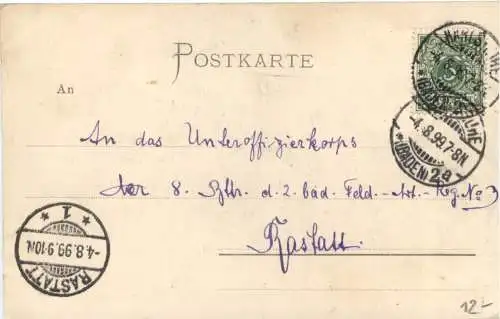 POSTKARTE
An
An das Unteroffizierkorps
der 8. Bttr. d. 2 bad. Feld-Art-Rg. No 3
Rastatt.
KARLSRUHE
(BADEN)
-4.8.99.7-8N.
*(BADEN) 2a
* 1 *
-4.8.99.9-10N.
RASTATT
5
12.-